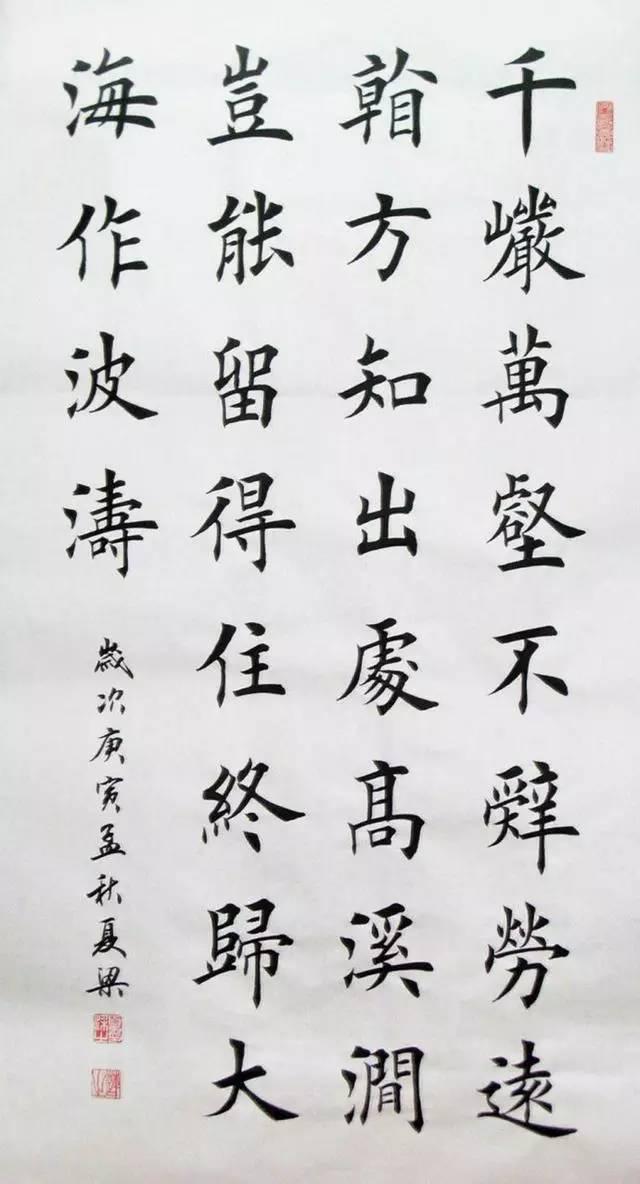 千巖萬壑不辭勞遠
看方知出處高溪澗
豈能留得住終歸大
海作波濤
歲次庚寅孟秋夏梁